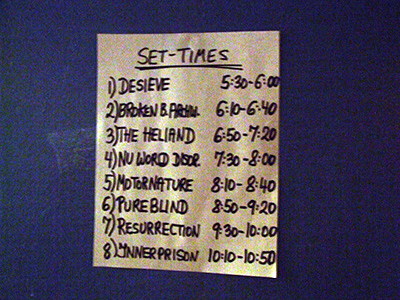 SET-TIMES
1) DESIEVE 5:30-6:00
2) BROKEN B. 6:10-6:40
3) THE HELIAND 6:50-7:20
4) NU WORLD DISOR. 7:30-8:00
5) MOTORNATURE 8:10-8:40
6) PUREBLIND 8:50-9:20
7) RESURRECTION 9:30-10:00
8) INNERPRISON 10:10-10:50